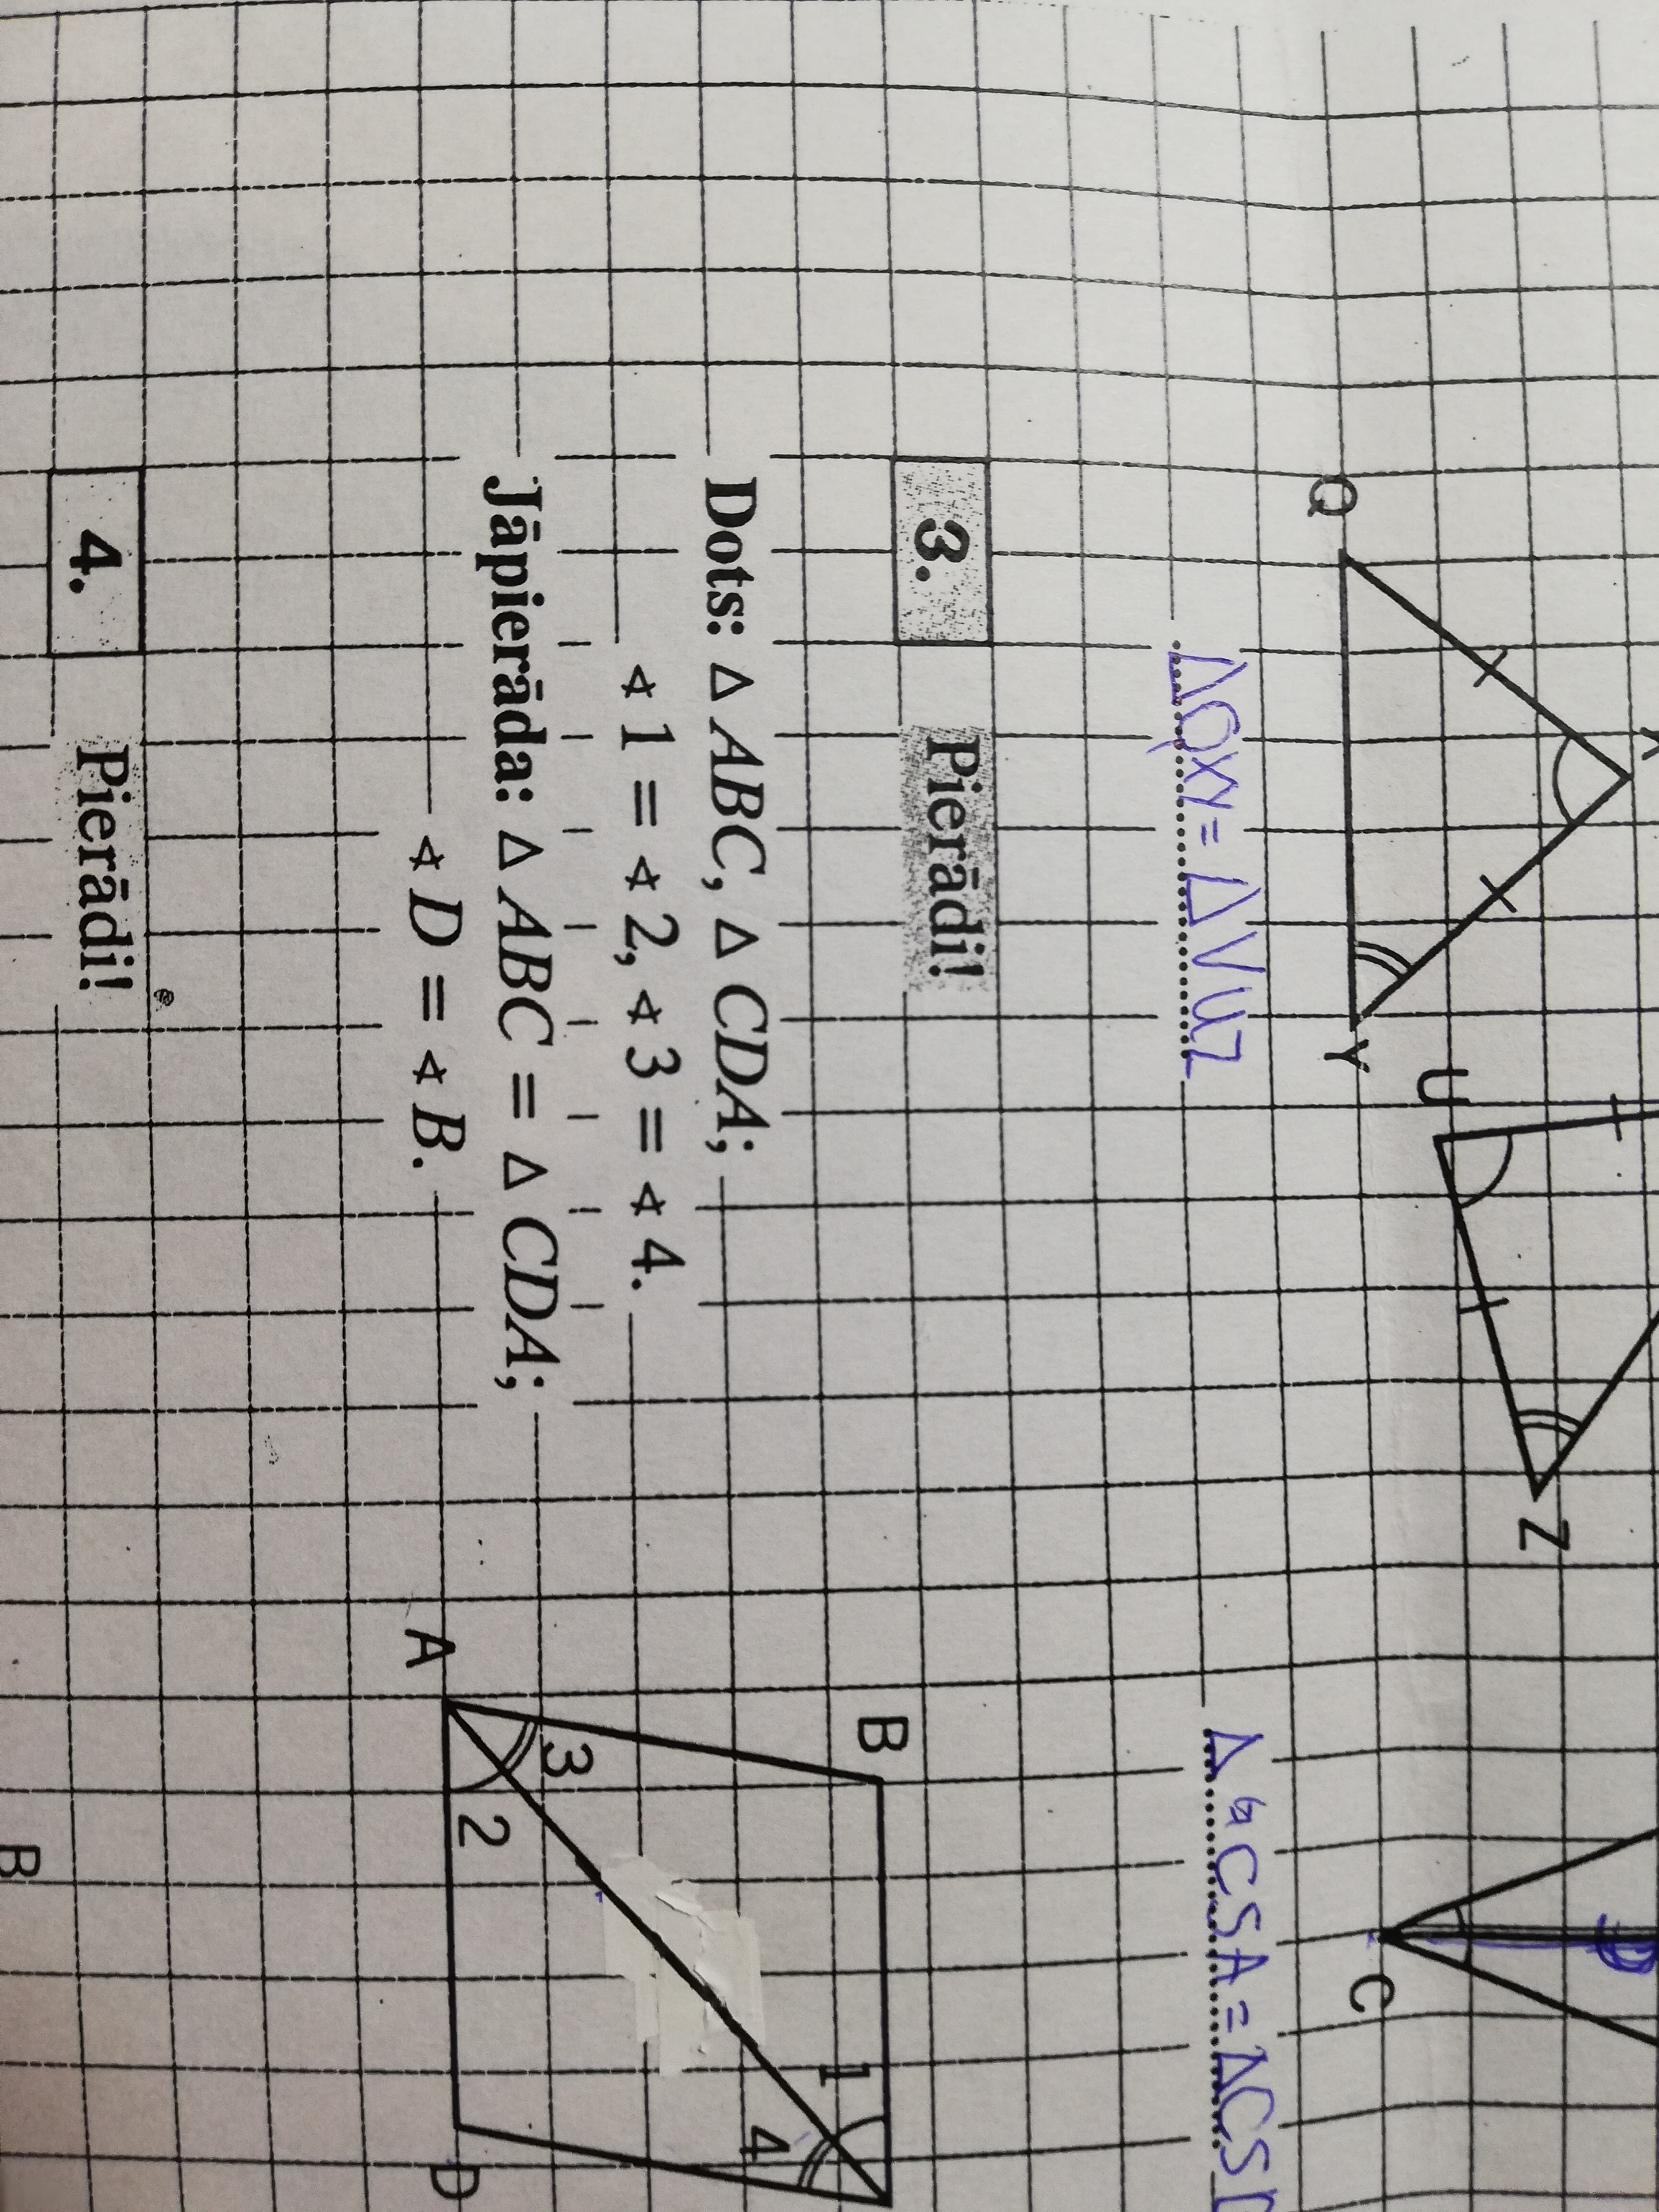 X
Q
Y
U
Z
C
△QXY = △VUZ
△CSA = △CS
3. Pierādi!
Dots: △ ABC, △ CDA;
∢ 1 = ∢ 2, ∢ 3 = ∢ 4.
Jāpierāda: △ ABC = △ CDA;
∢ D = ∢ B.
B
1
4
3
2
A
D
4. Pierādi!
B